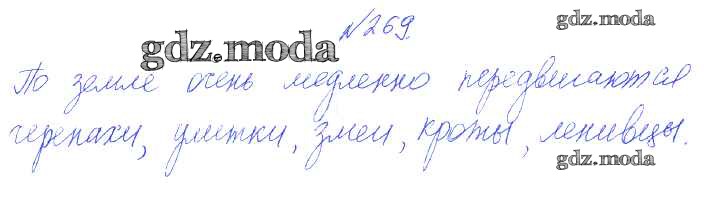 №269.
gdz.moda
gdz.moda
По земле очень медленно передвигаются
черепахи, улитки, змеи, кроты, ленивцы.
gdz.moda